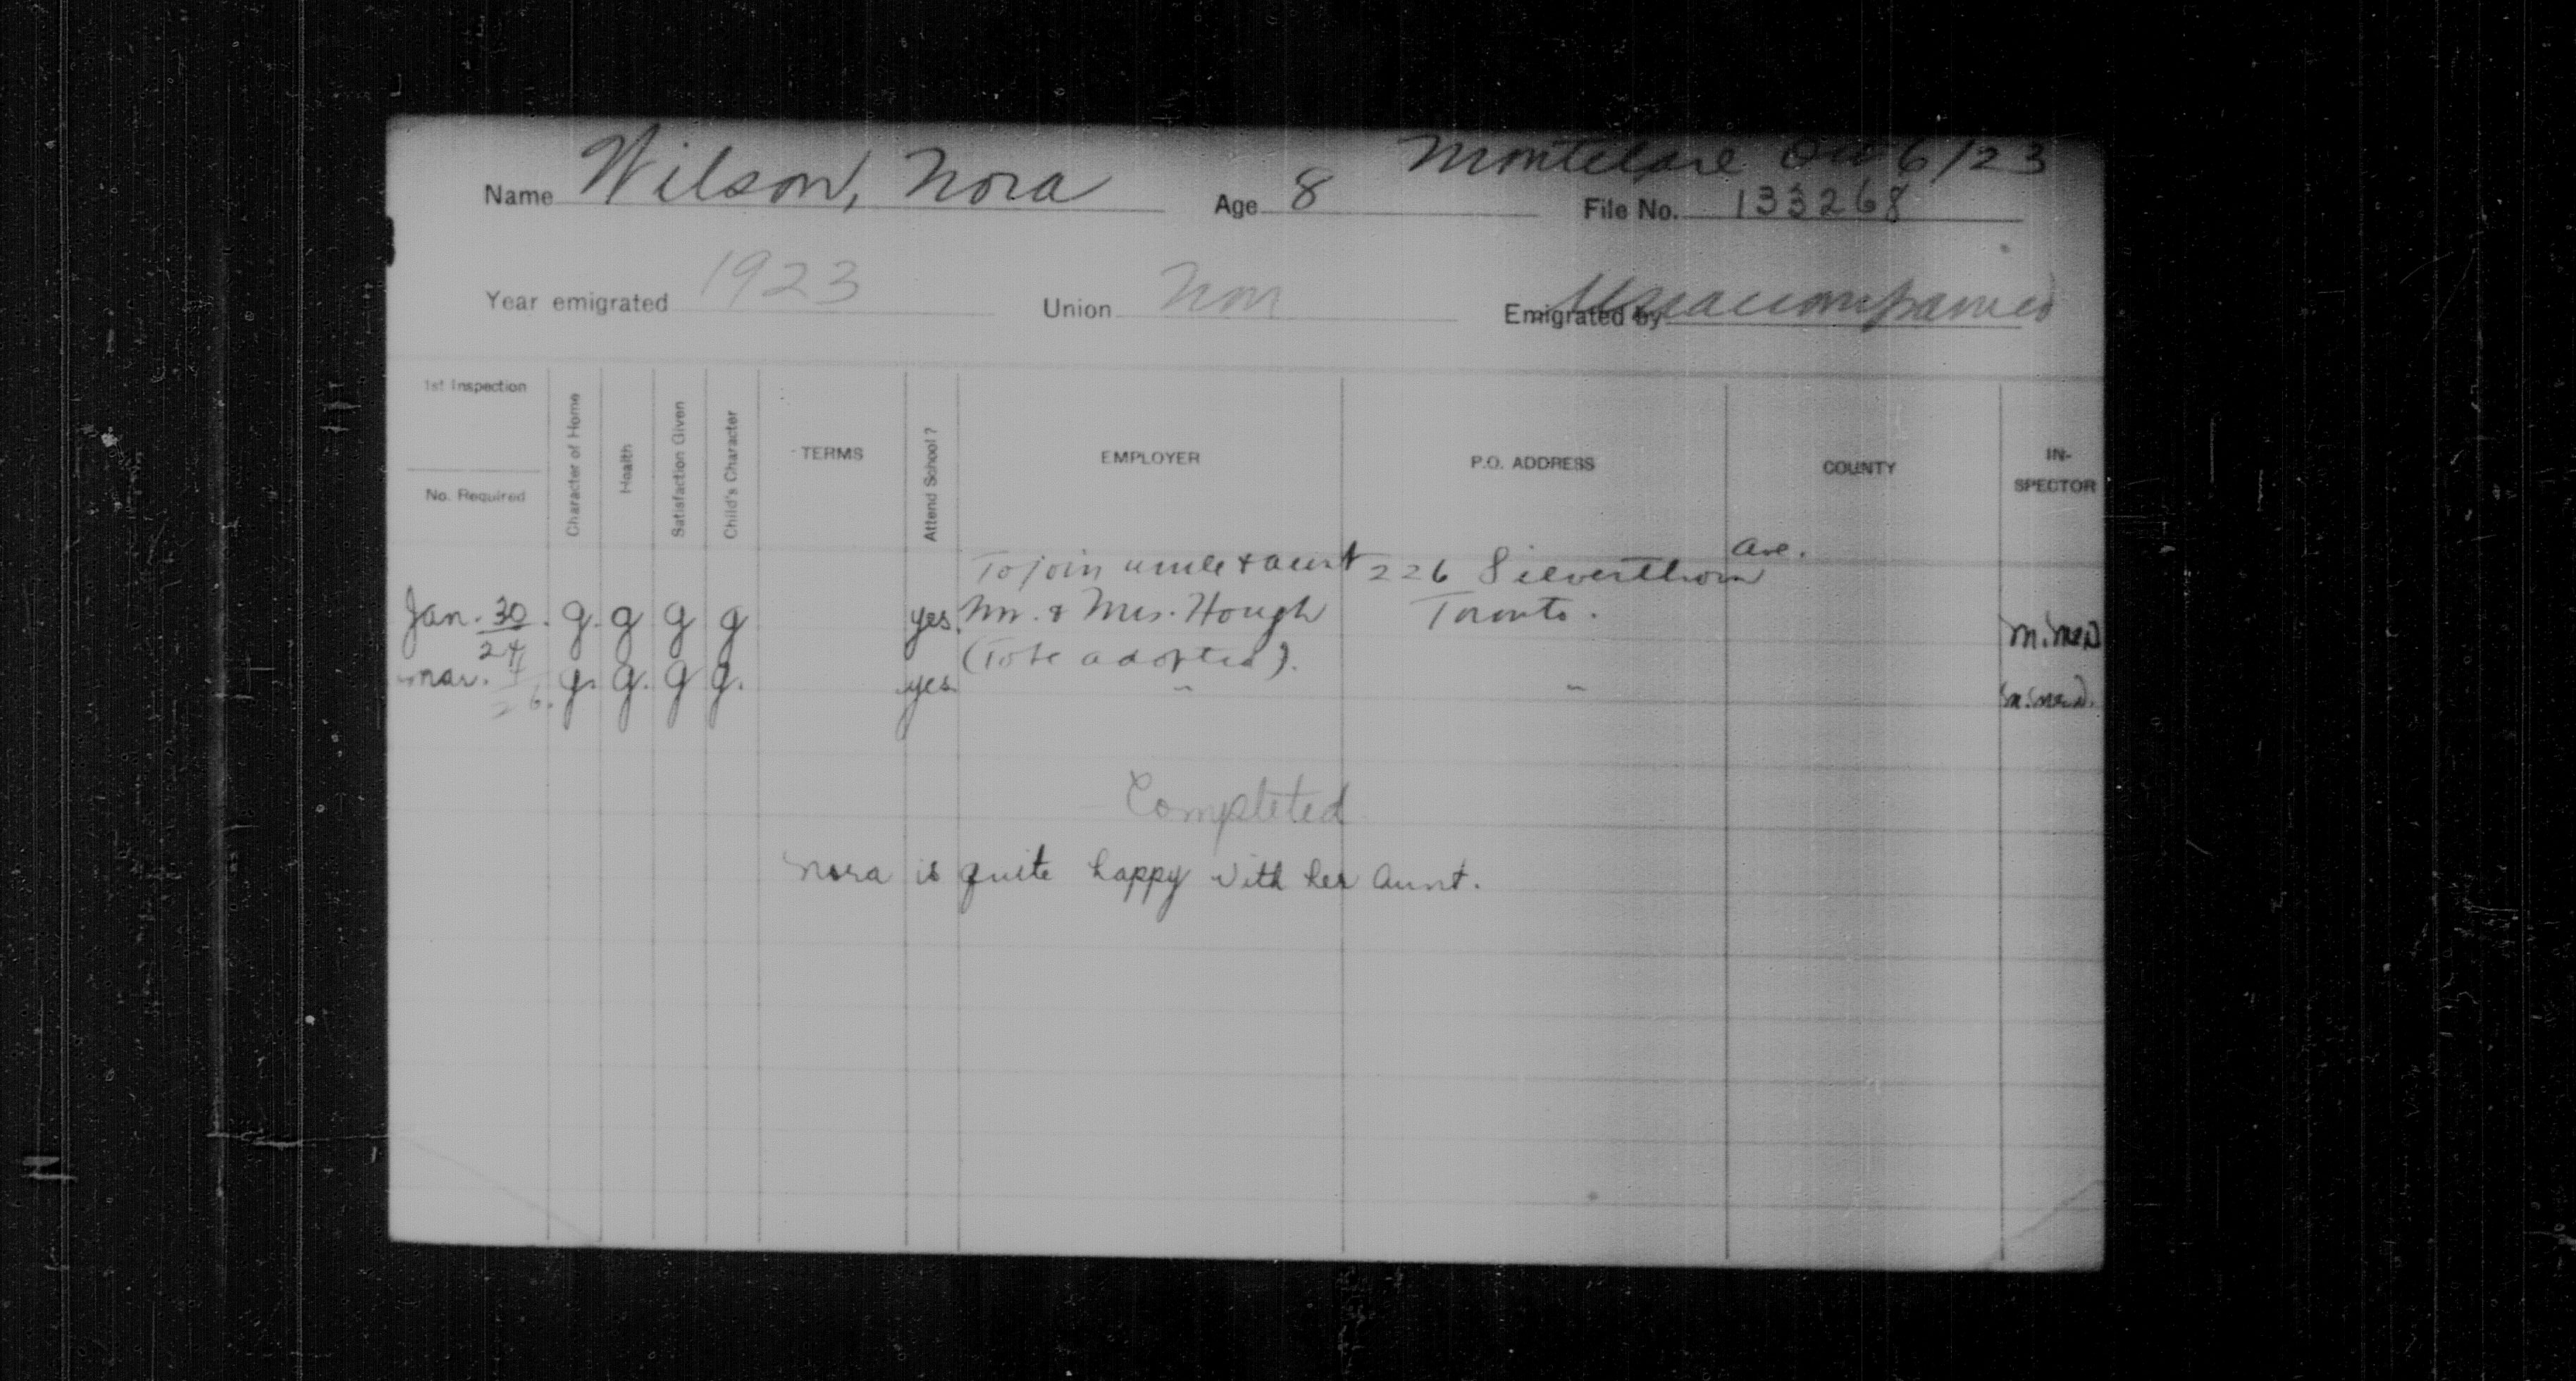 Montclare Oct 6/23
Name Wilson, Nora Age 8 File No. 133268
Year emigrated 1923 Union Non Emigrated by Unaccompanied
1st Inspection
No. Required
Character of Home
Health
Satisfaction Given
Child's Character
TERMS
Attend School?
EMPLOYER
P.O. ADDRESS
COUNTY
IN-
SPECTOR
To join uncle & aunt 226 Silverthorn Ave.
Jan. 30/24 g. g g g yes. Mr. & Mrs. Hough Toronto.
(To be adopted).
Mar. 4/26. g. g. g g. yes. " "
Completed
Nora is quite happy with her aunt.